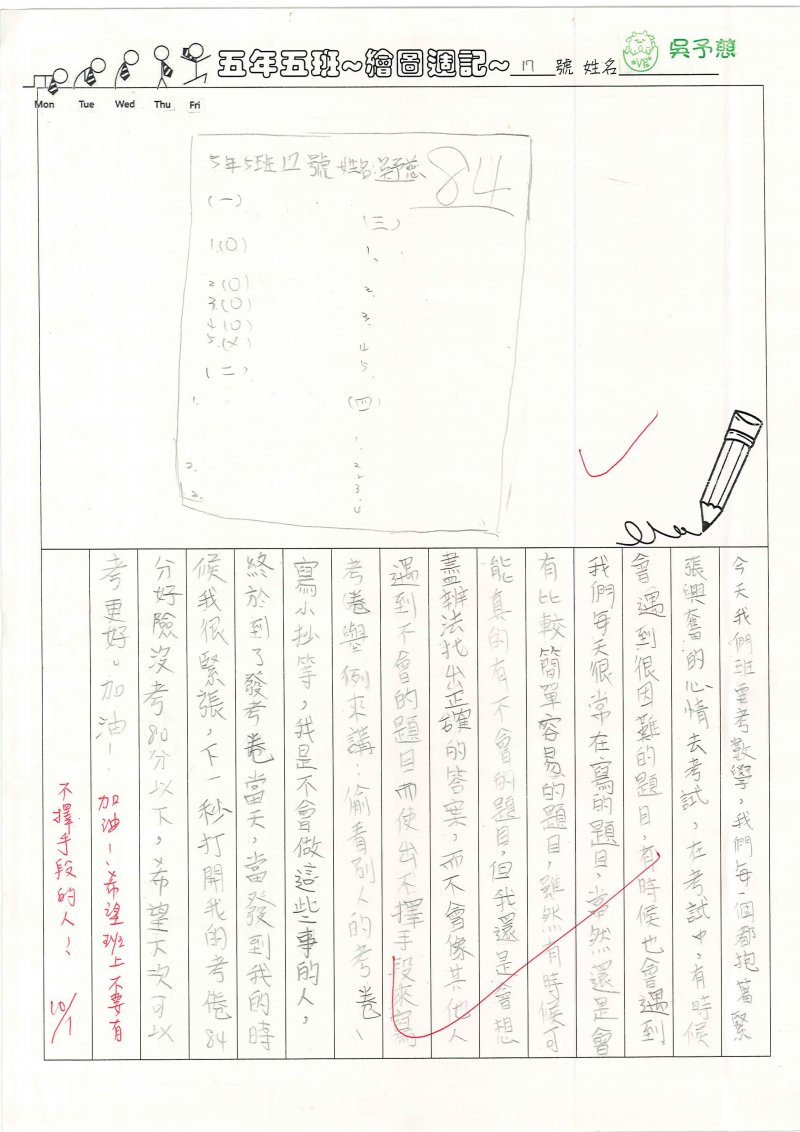 五年五班~繪圖週記~ 17 號 姓名 吳予慈
*VG*
Mon Tue Wed Thu Fri
5年5班17號 姓名:吳予慈 84
(一)
1.(O)
2.(O)
3.(O)
4.(O)
5.(×)
(二)
1.
2.
3.
(三)
1.
2.
3.
4
5.
(四)
1.
2.
3.
4
今天我們班要考數學,我們每一個都抱著緊
張興奮的心情去考試,在考試中,有時候
會遇到很困難的題目,有時候也會遇到
我們每天很常在寫的題目,當然還是會
有比較簡單容易的題目,雖然有時候可
能真的有不會的題目,但我還是會想
盡辦法找出正確的答案,而不會像其他人
遇到不會的題目而使出不擇手段來寫
考卷舉例來講:偷看別人的考卷、
寫小抄等,我是不會做這些事的人,
終於到了發考卷當天,當發到我的時
候我很緊張,下一秒打開我的考倦84
分好險沒考80分以下,希望下次可以
考更好。加油!
加油!希望班上不要有
不擇手段的人!
10/1